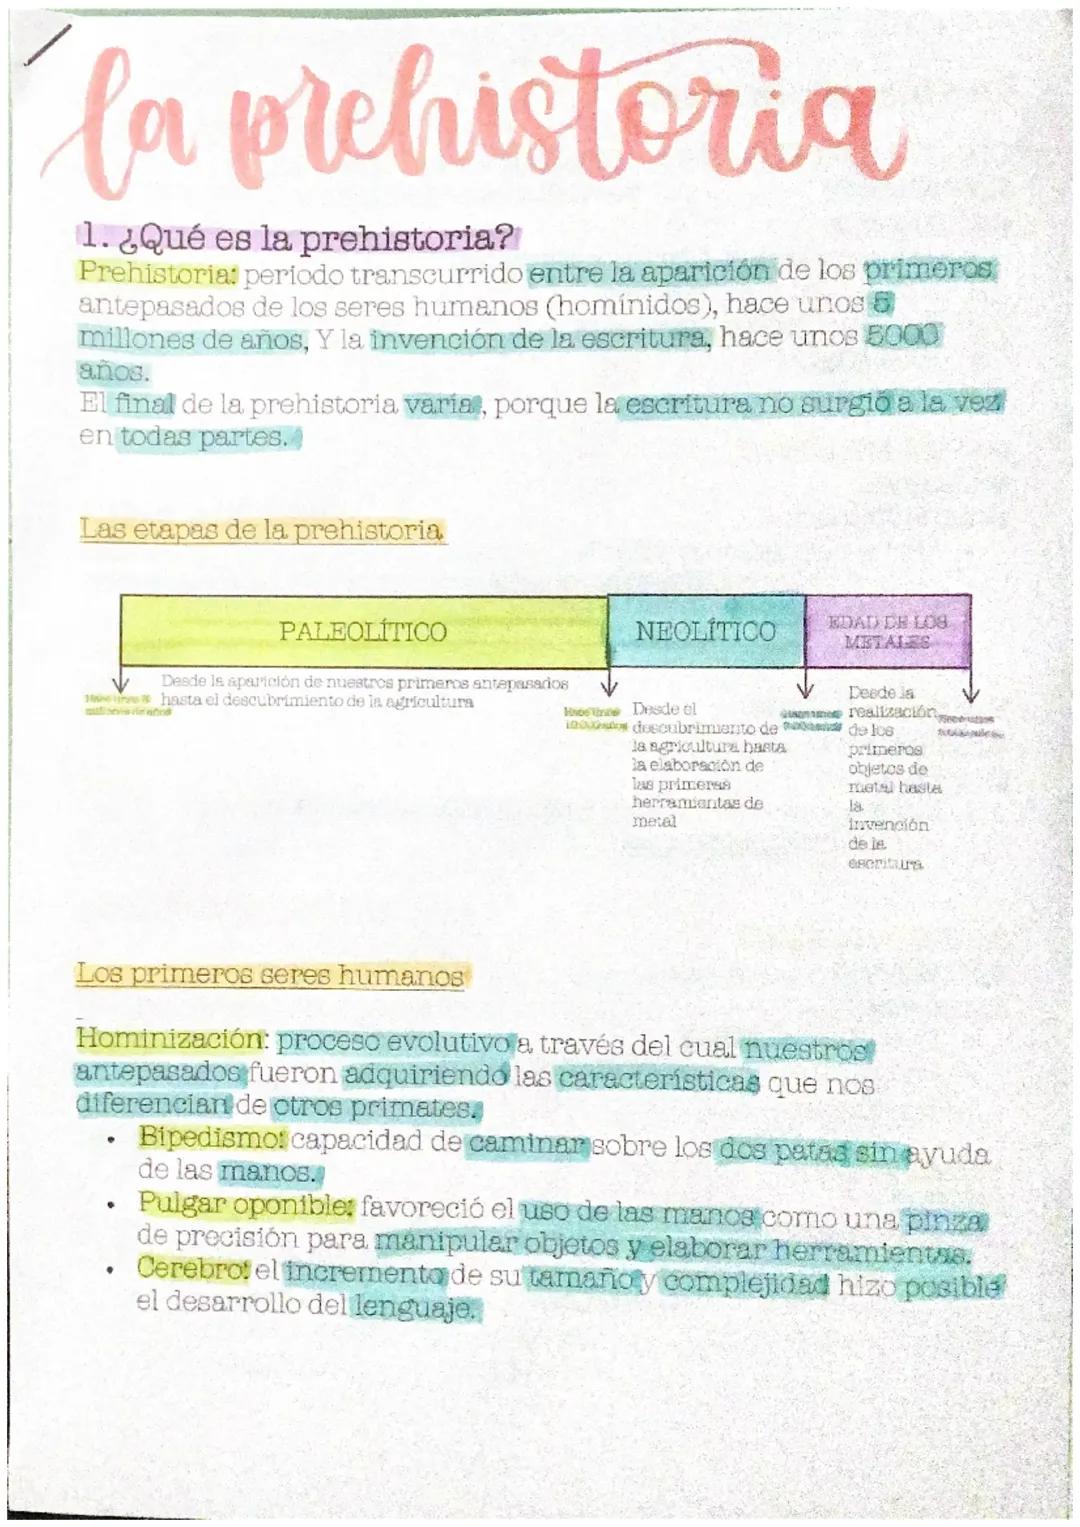 la prehistoria
1. ¿Qué es la prehistoria?
Prehistoria: periodo transcurrido entre la aparición de los primeros
antepasados de los seres humanos (homínidos), hace unos 5
millones de años, Y la invención de la escritura, hace unos 5000
años.
El final de la prehistoria varia, porque la escritura no surgió a la vez
en todas partes.
Las etapas de la prehistoria
PALEOLÍTICO
NEOLÍTICO
EDAD DE LOS
METALES
Desde la aparición de nuestros primeros antepasados
hasta el descubrimiento de la agricultura
Hace unos
millones de años
Hace unos
Desde el
descubrimiento de
la agricultura hasta
la elaboración de
las primeras
herramientas de
metal
Desde la
realización
de los
primeros
objetos de
metal hasta
la
invención
de la
escritura
Los primeros seres humanos
Hominización: proceso evolutivo a través del cual nuestros
antepasados fueron adquiriendo las características que nos
diferencian de otros primates.
• Bipedismo: capacidad de caminar sobre los dos patas sin ayuda
de las manos.
• Pulgar oponible: favoreció el uso de las manos como una pinza
de precisión para manipular objetos y elaborar herramientas.
• Cerebro: el incremento de su tamaño y complejidad hizo posible
el desarrollo del lenguaje.